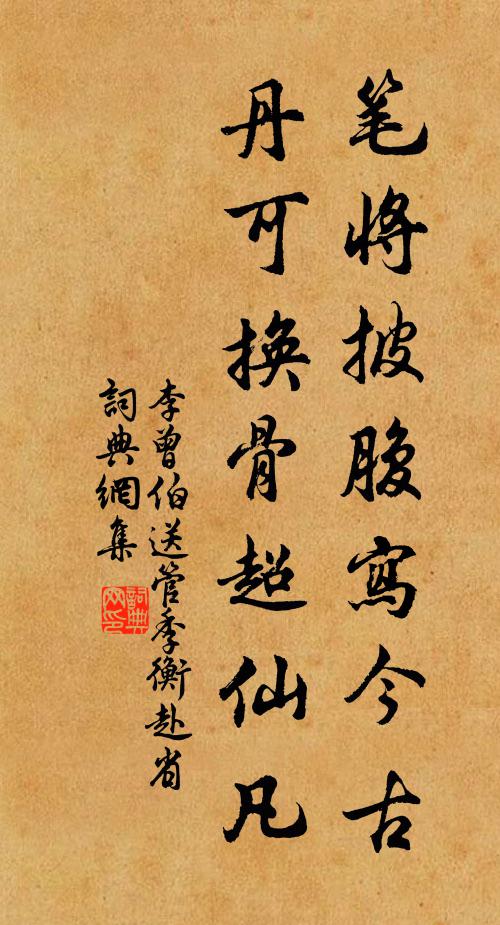 笔將披腹寫今古
丹可換骨超仙凡
李曾伯送管季衡赴省
詞典網集
詞典网印